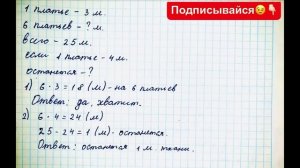 Подписывайся😉👇
1 платье - 3 м.
6 платьев - ? м.
всего - 25 м.
если 1 платье - 4 м.
останется - ?
1) 6 · 3 = 18 (м) - на 6 платьев
Ответ: да, хватит.
2) 6 · 4 = 24 (м)
25 - 24 = 1 (м) - останется.
Ответ: останется 1 м. ткани.